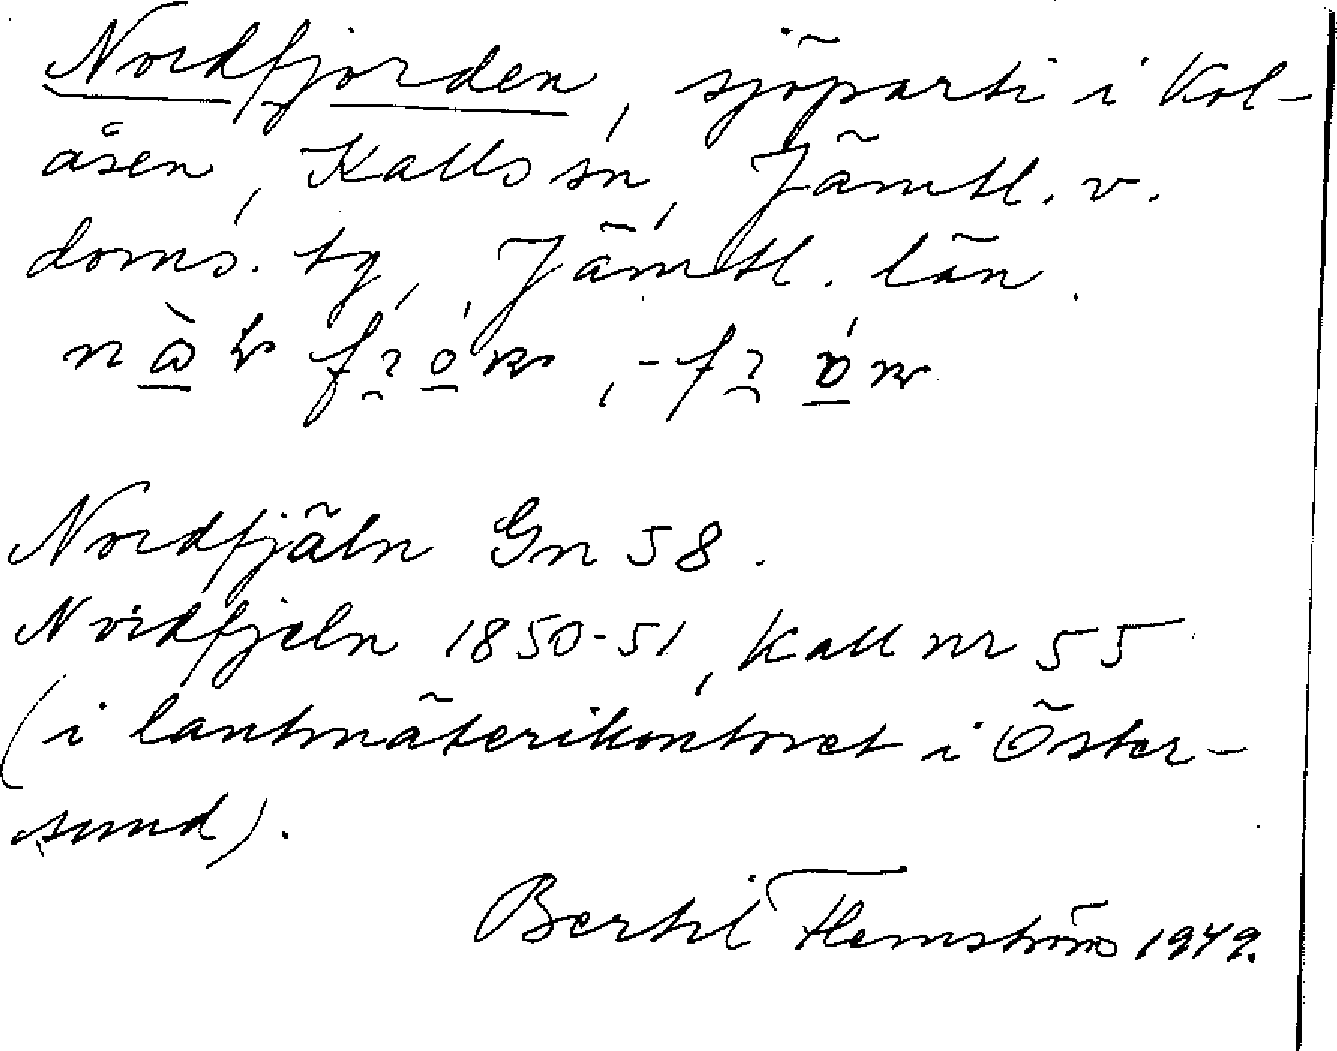 Nordfjorden, sjöparti i Kol-
åsen, Kalls sn, Jämtl. v.
doms. tg, Jämtl. län.
Nordfjäln Gn 58.
Nordfjeln 1850-51, Kall nr 55
(i lantmäterikontoret i Öster-
sund).
Bertil Flemström 1949.